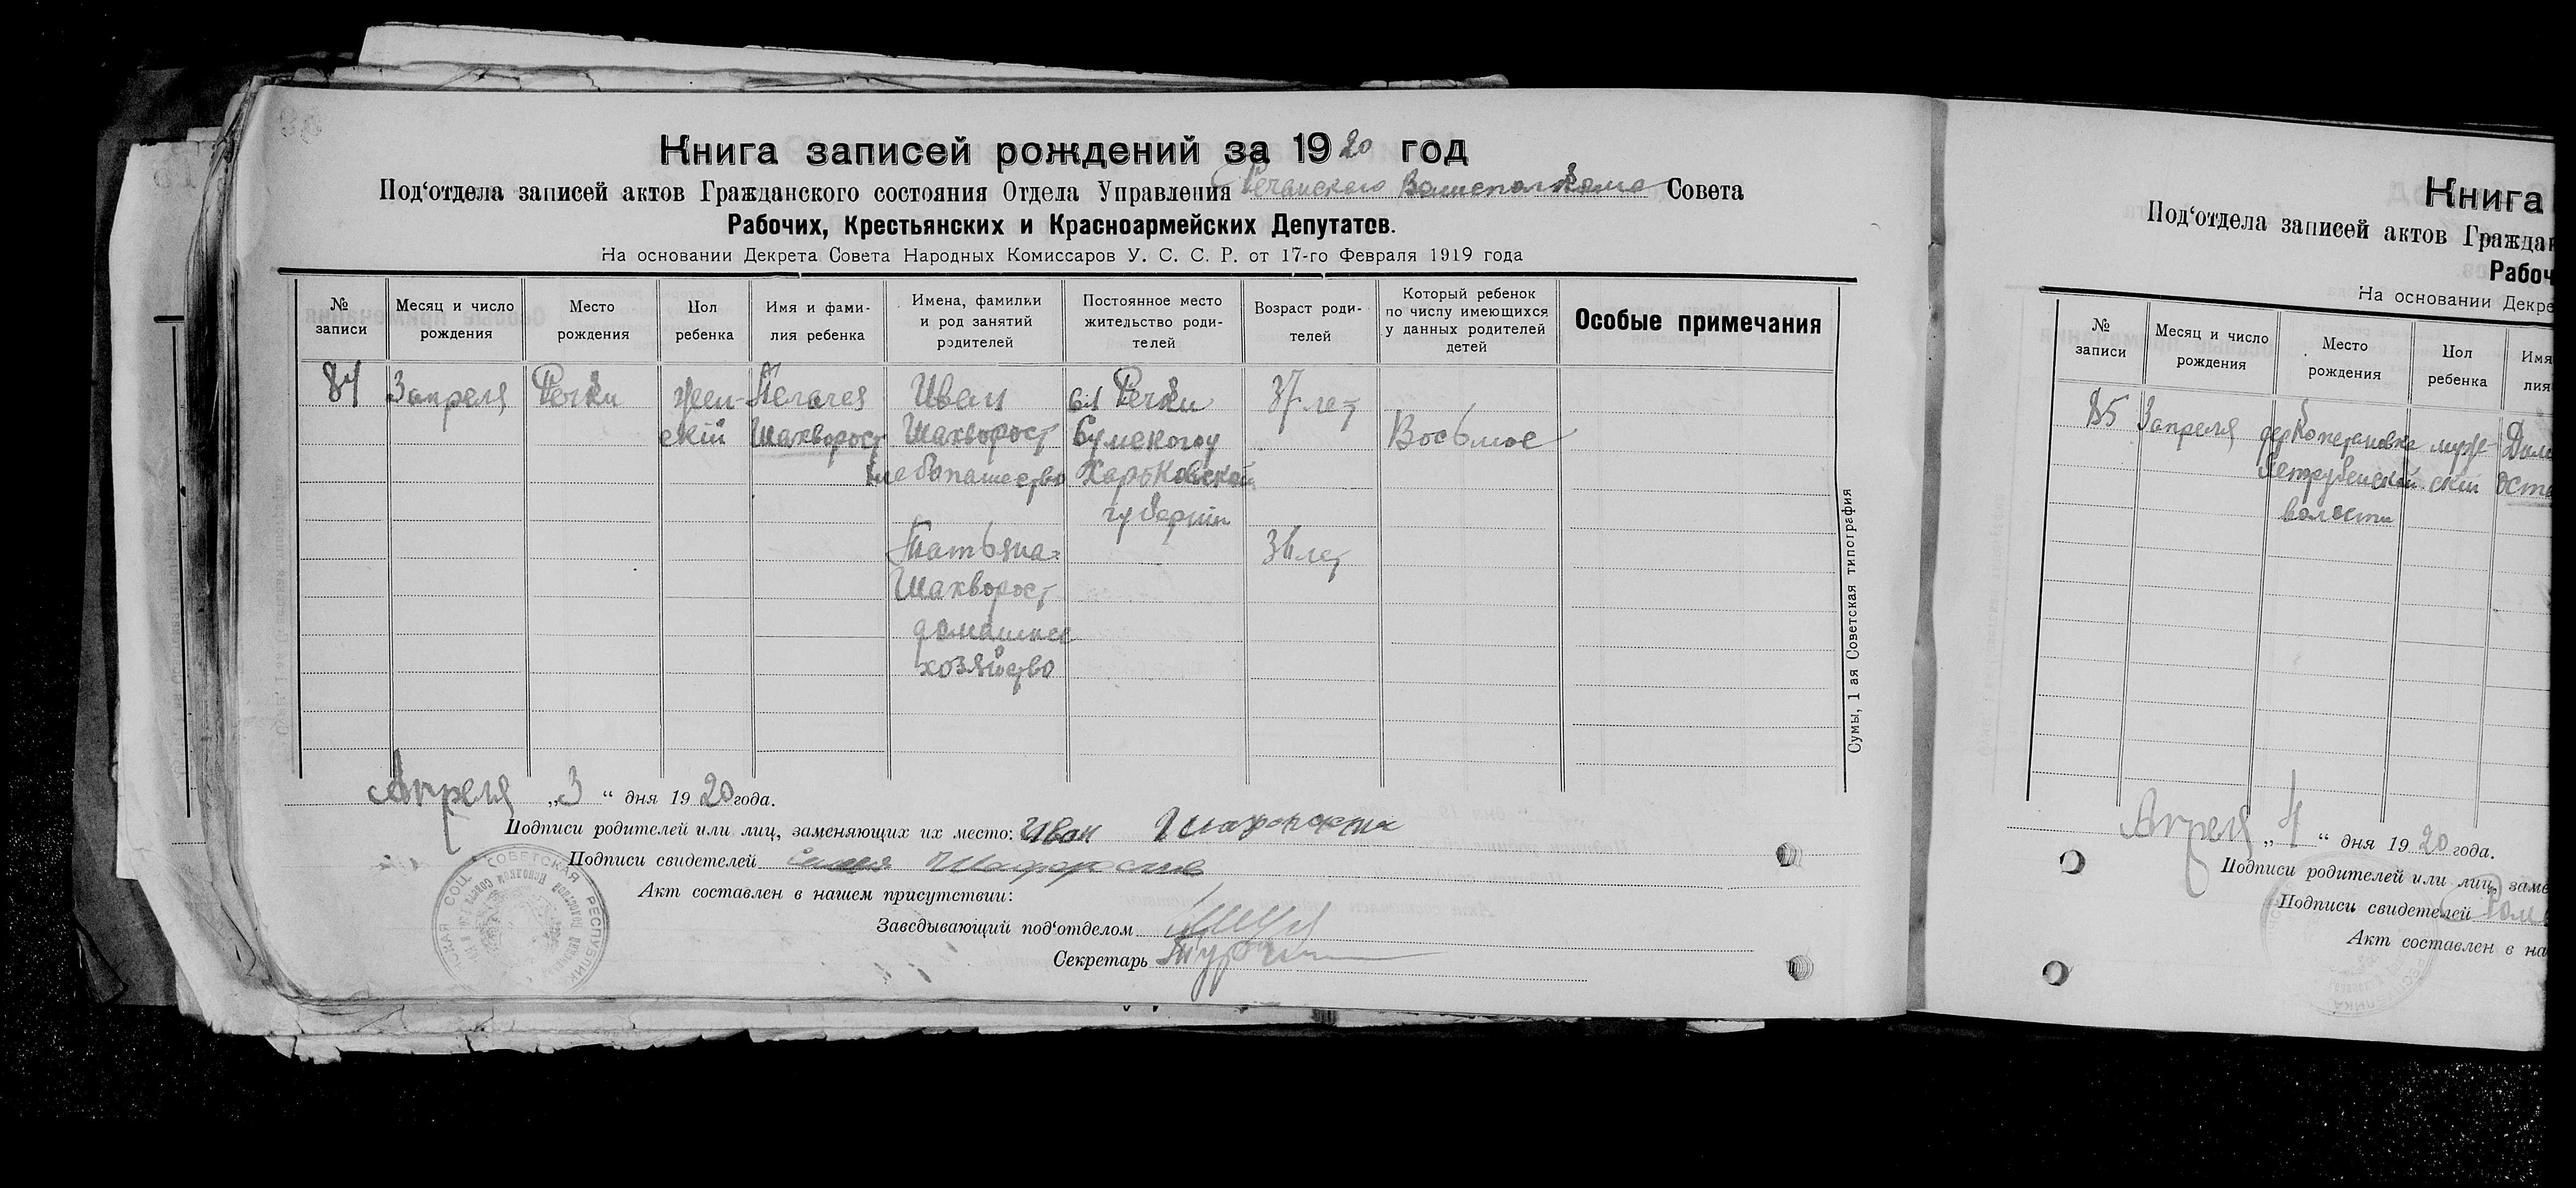 Книга записей рождений за 1920 год
Под‘отдела записей актов Гражданского состояния Отдела Управления Речанского Волисполкома Совета
Рабочих, Крестьянских и Красноармейских Депутатов.
На основании Декрета Совета Народных Комиссаров У. С. С. Р. от 17-го Февраля 1919 года
№ записи
Месяц и число рождения
Место рождения
Пол ребенка
Имя и фами- лия ребенка
Имена, фамилии и род занятий родителей
Постоянное место жительство роди- телей
Возраст роди- телей
Который ребенок по числу имеющихся у данных родителей детей
Особые примечания
84
3 апреля
Речки
жен-
скій
Пелагея
Шахворост
Иван
Шахворост
хлебопашество
Татьяна
Шахворост
домашнее
хозяйство
сл Речки
Сумского у
Харьковской
губернии
37 лет
36 лет
Восьмое
Апреля „3“ дня 1920 года.
Подписи родителей или лиц, заменяющих их место: Иван
Подписи свидетелей
Акт составлен в нашем присутствии:
Заведывающий под‘отделом
Секретарь
Сумы, 1 ая Советская типография
СОЦ. СОВЕТСКАЯ РЕСПУБЛИК
Книга
Под‘отдела записей актов Граждан
Рабоч
На основании Декре
№ записи
Месяц и число рождения
Место рождения
Пол ребенка
Имя
лия
85
3 апреля
волости
муж-
скій
Апреля „4“ дня 1920 года.
Подписи родителей или лиц, заме
Подписи свидетелей
Акт составлен в на